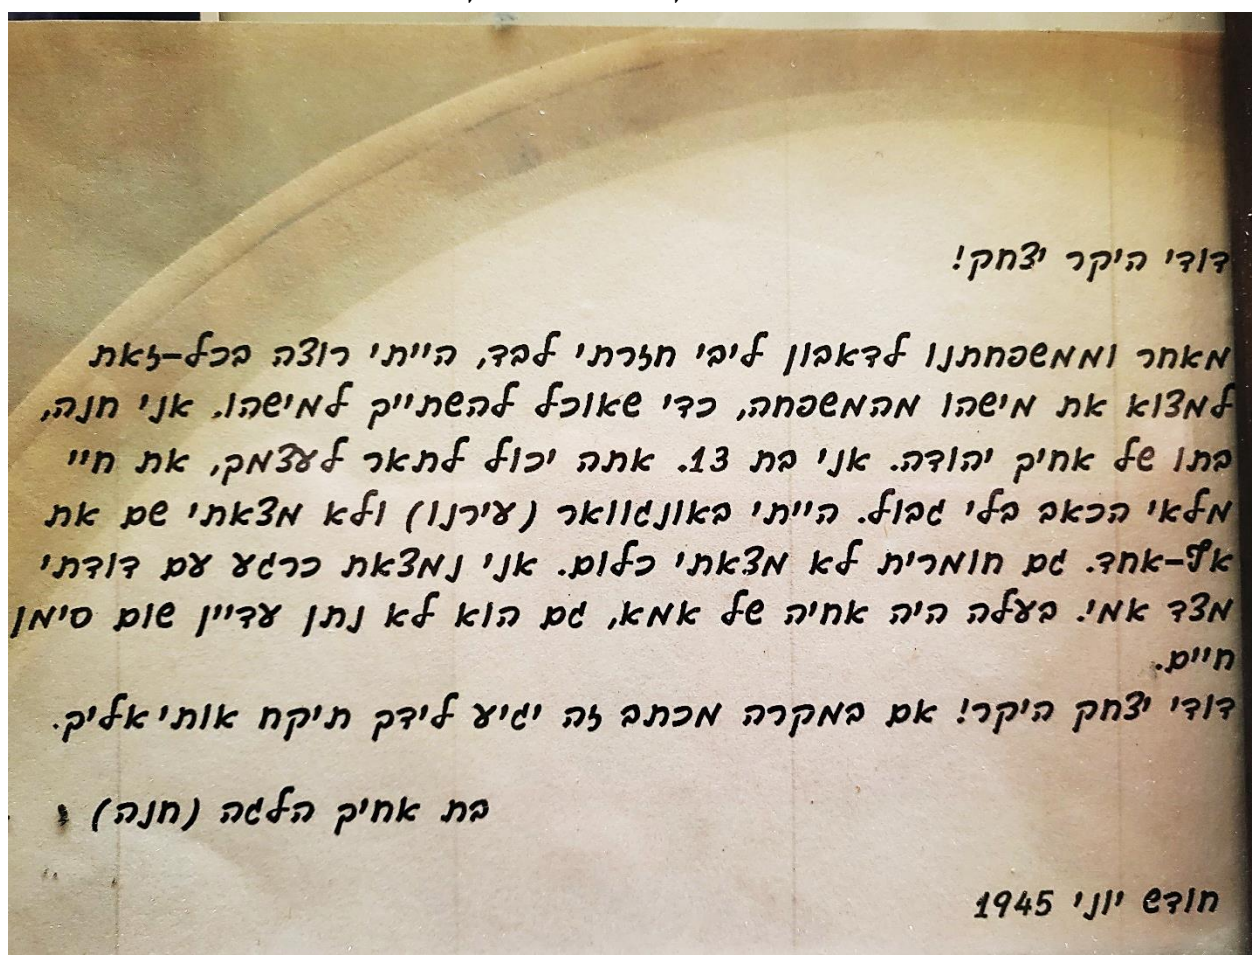 דודי היקר יצחק!
מאחר וממשפחתנו לדאבון ליבי חזרתי לבד, הייתי רוצה בכל-זאת
למצוא את מישהו מהמשפחה, כדי שאוכל להשתייך למישהו. אני חנה,
בתו של אחיך יהודה. אני בת 13. אתה יכול לתאר לעצמך, את חיי
מלאי הכאב בלי גבול. הייתי באונגוואר (עירנו) ולא מצאתי שם את
אף-אחד. גם חומרית לא מצאתי כלום. אני נמצאת כרגע עם דודתי
מצד אמי. בעלה היה אחיה של אמא, גם הוא לא נתן עדיין שום סימן
חיים.
דודי יצחק היקר! אם במקרה מכתב זה יגיע לידך תיקח אותי אליך.
בת אחיך הלגה (חנה)
חודש יוני 1945